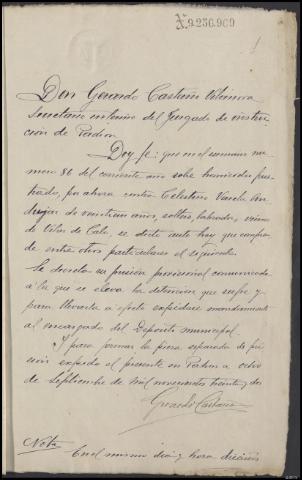 N.9.256.969
1
Don Gerardo Castiñ Vilanova
Secretario interino del Juzgado de instruc-
ción de Padron
Doy fe: que en el sumario nu-
mero 86 del corriente año sobre homicidio frus-
trado, por ahora contra Celestino Varela An-
dujar de veintiun años, soltero, labrador, vecino
de se dictó auto hoy que compren-
de entre otros particulares el siguiente.
Se decreta en prision provisional comunicada
á la que se eleva la detencion que sufre y
para llevarla á efecto expidase mandamiento
al encargado del Depósito municipal.
Y para formar la pieza separada de pri-
sion expido el presente en Padron a ocho
de Septiembre de mil novecientos treinta y dos
Gerardo Castiñ
Nota
En el mismo dia y hora